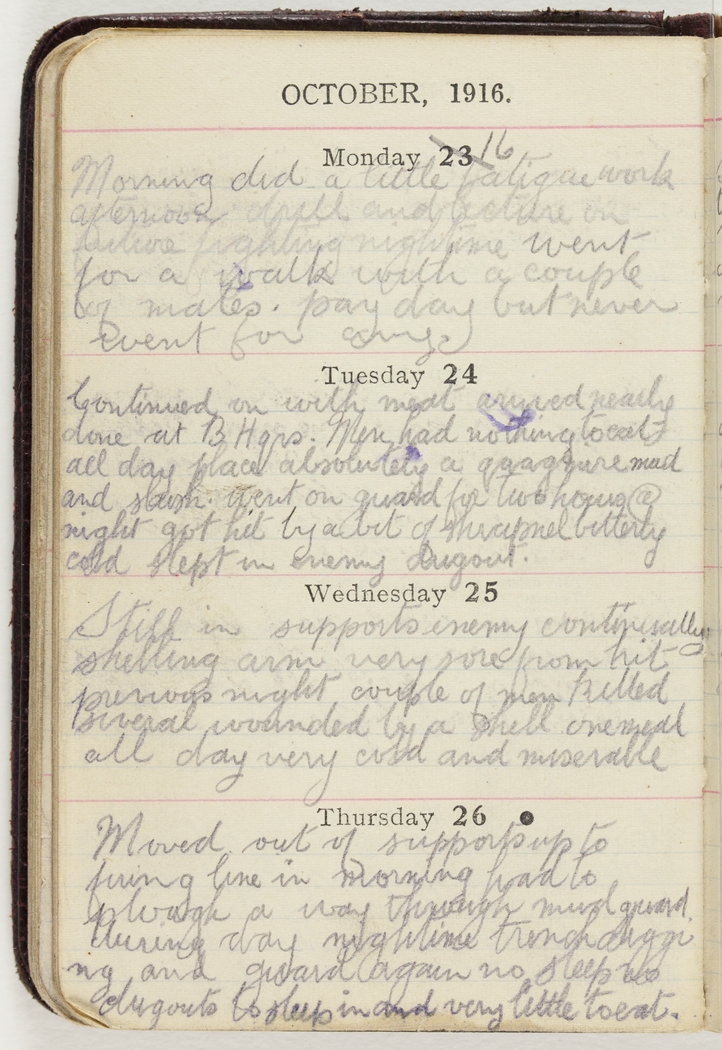 OCTOBER, 1916.
Monday 23 16
Morning did a little fatigue work
afternoon drill and lecture on
future fighting nightime went
for a walk with a couple
of mates. pay day but never
went for any.
Tuesday 24
Continued on with meat arrived nearly
done at B Hqrs. Men had nothing to eat
all day place absolutely a quagmire mud
and slush. went on guard for two hours @
night got hit by a bit of shrapnel bitterly
cold slept in enemy dugout.
Wednesday 25
Still in supports enemy continually
shelling arm very sore from hit
previous night couple of men killed
several wounded by a shell one meal
all day very cold and miserable
Thursday 26
Moved out of supports up to
firing line in morning had to
plough a way through mud guard
during day nightime trench diggi
ng and guard again no sleep no
dugouts to sleep in and very little to eat.